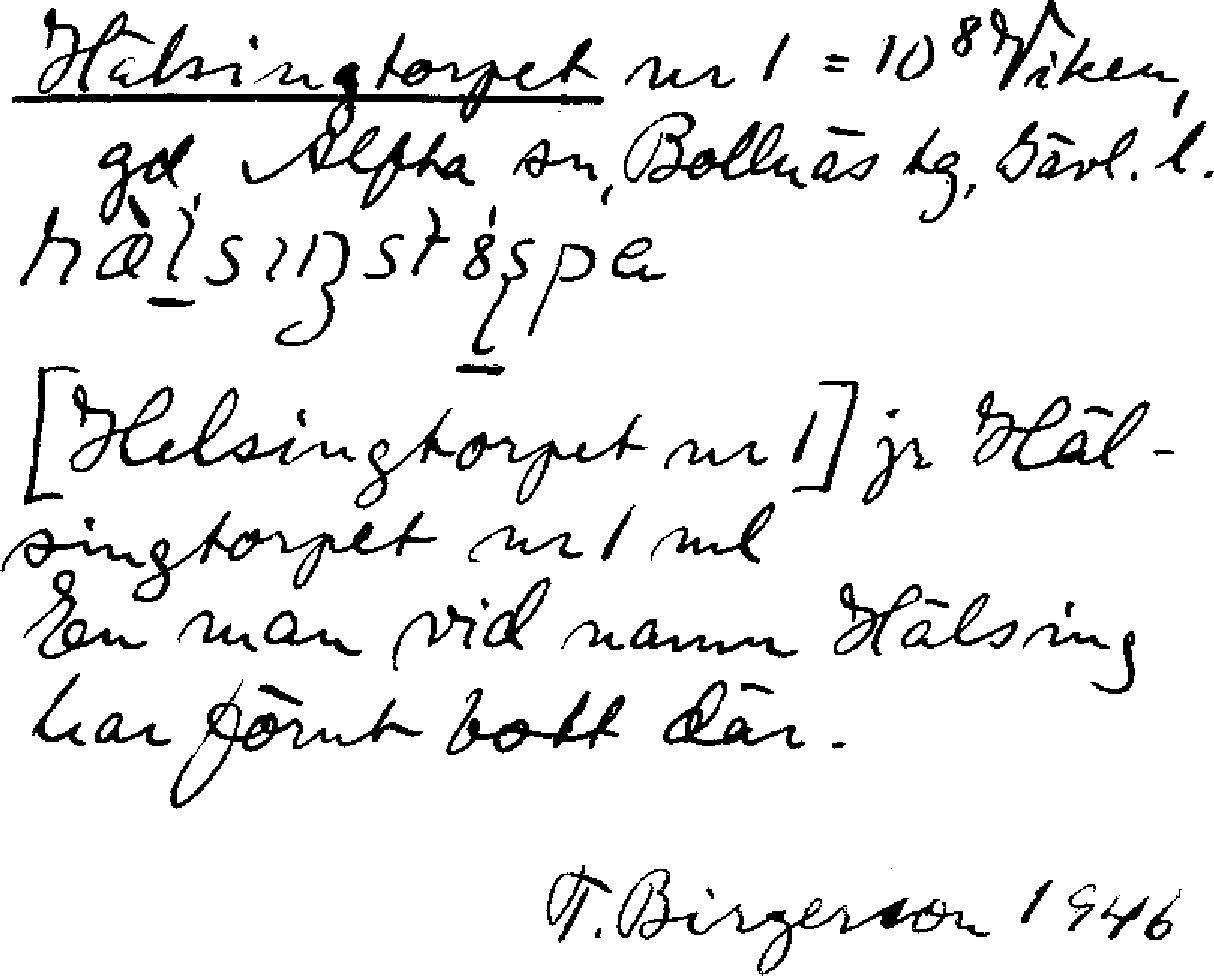 Hälsingtorpet nr 1 = 10⁸ Viken,
gd, Alfta sn, Bollnäs tg, Gävl. l.
[Helsingtorpet nr 1] jr Häl-
singtorpet nr 1 ml
En man vid namn Hälsing
har förut bott där.
T. Birgerson 1946